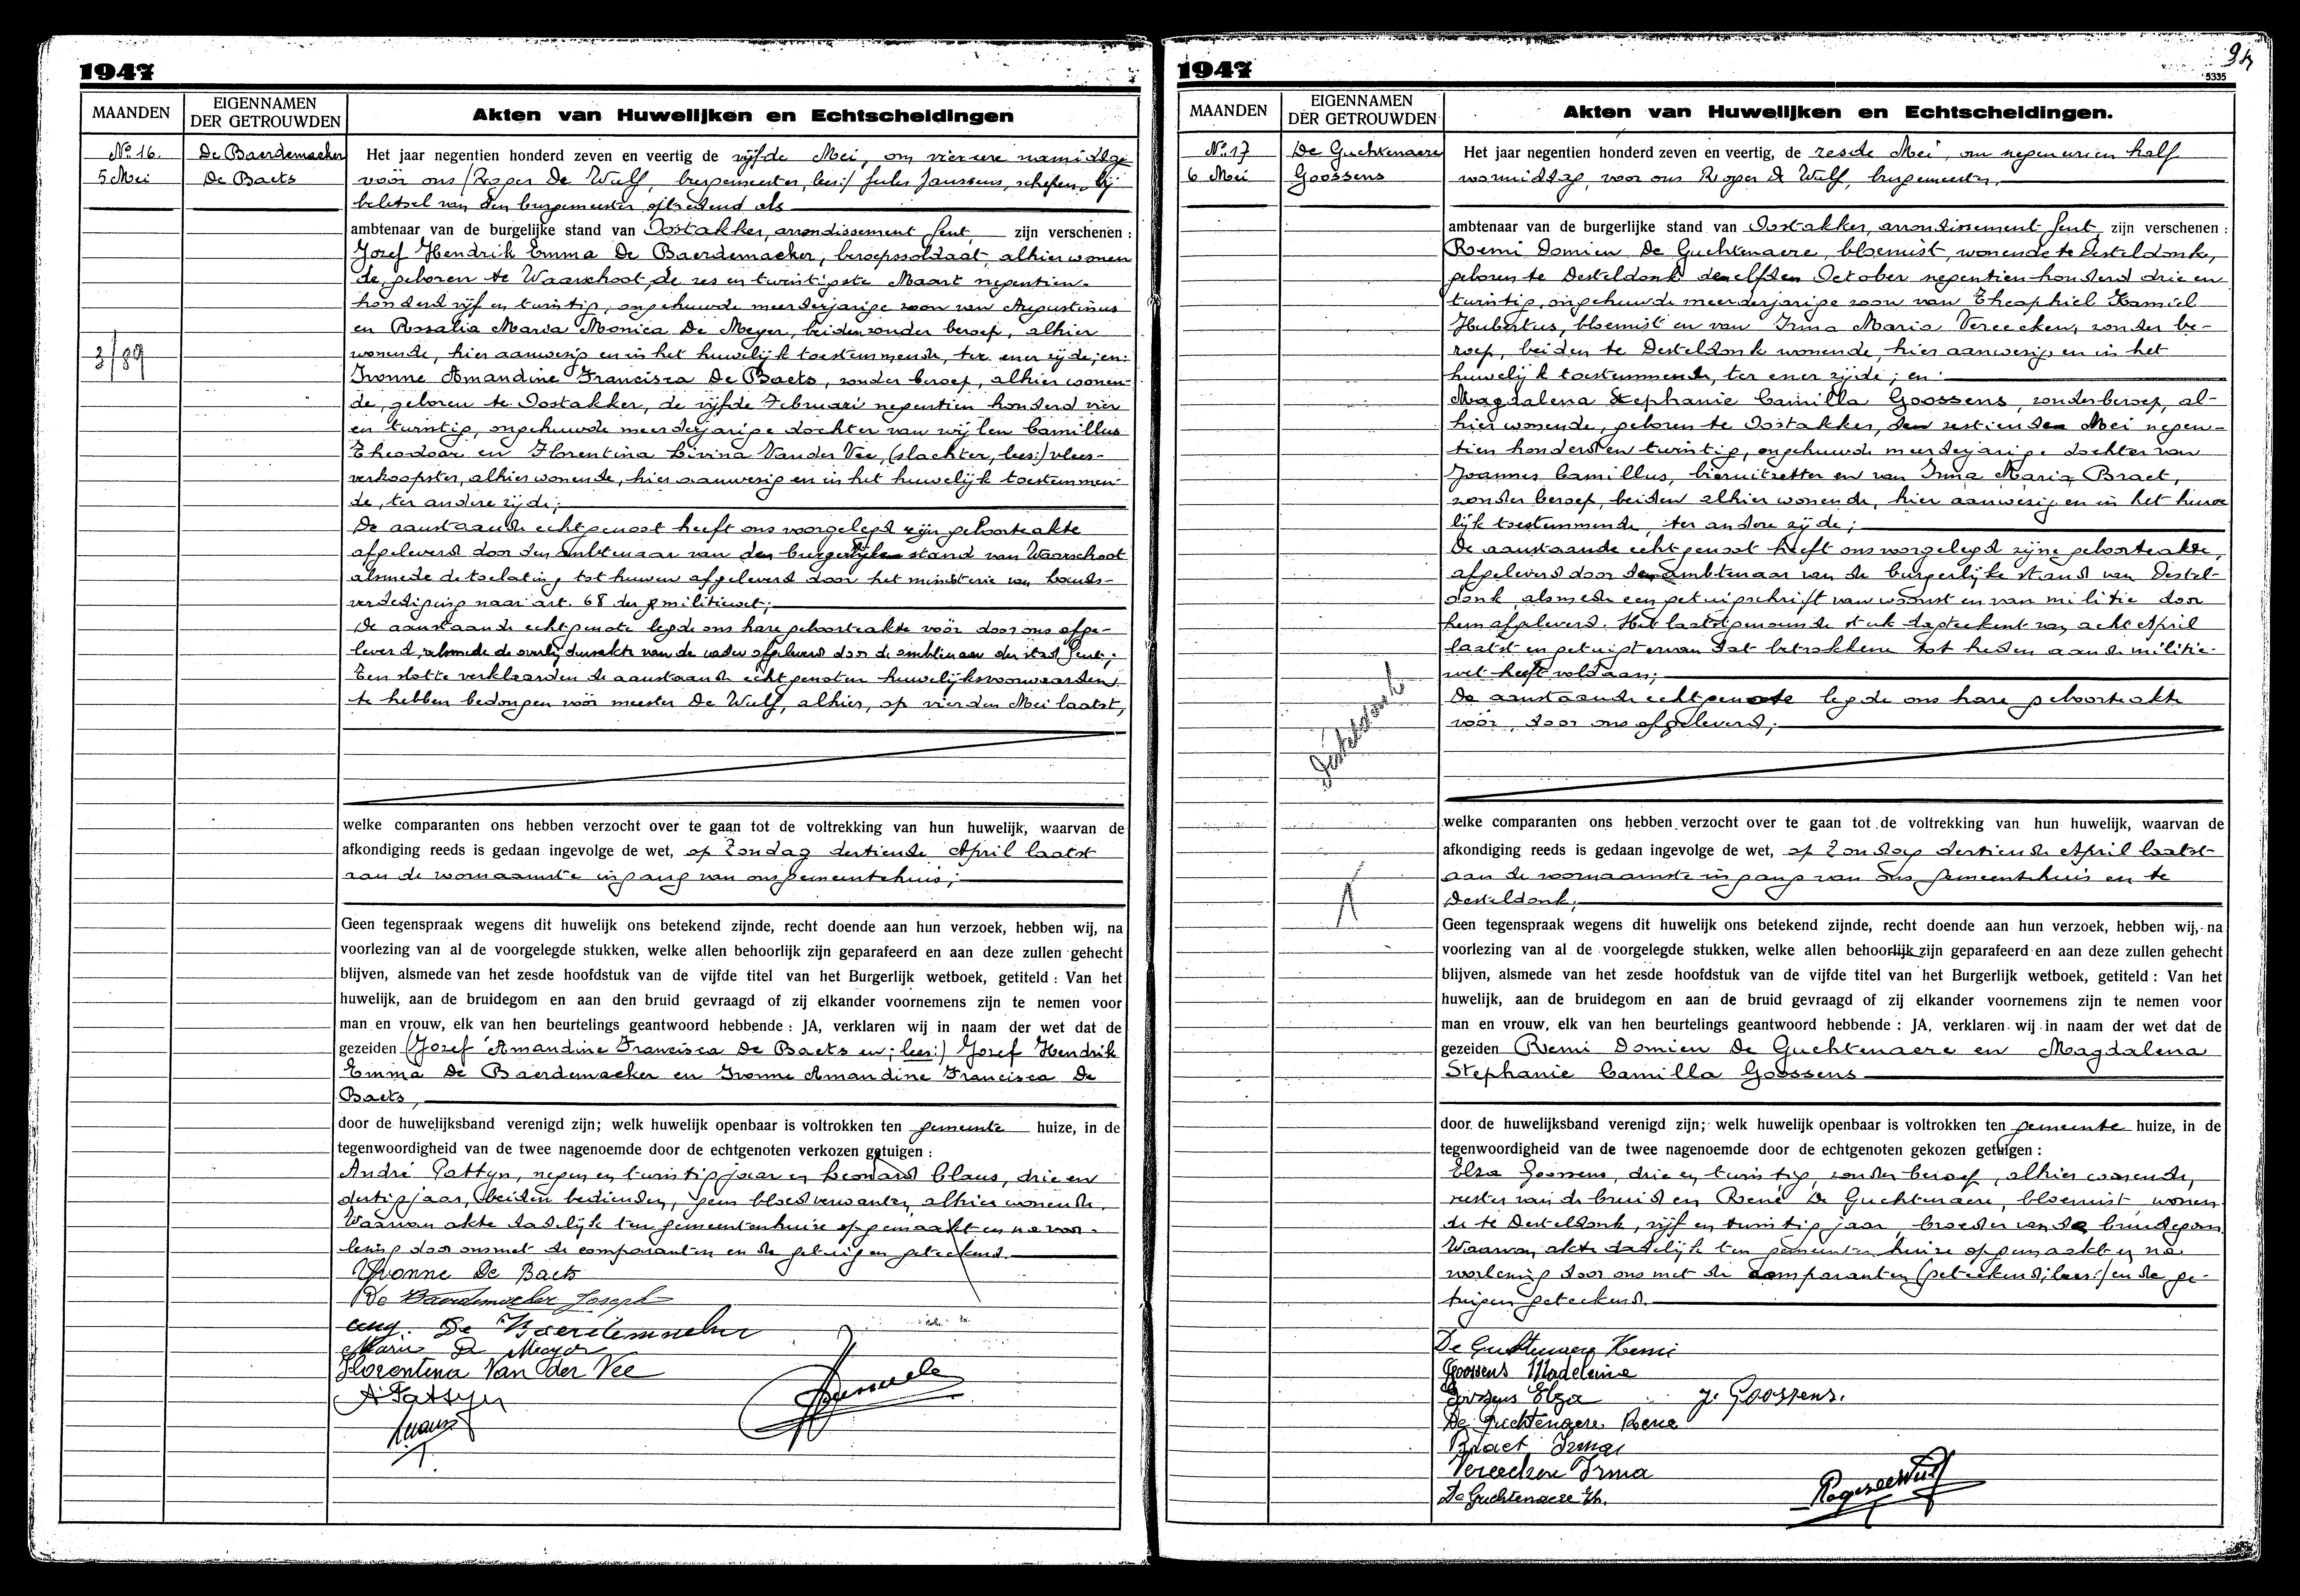 1947
MAANDEN
EIGENNAMEN
DER GETROUWDEN
Akten van Huwelijken en Echtscheidingen
No 16.
5 Mei
De Baerdemaeker
De Baets
3/89
Het jaar negentien honderd zeven en veertig de vijfde Mei, om vier ure namiddag
voör ons (Roger De Wulf, burgemeester, lees:) Jules Janssens, schepen, bij
beletsel van den burgemeester optredend als
ambtenaar van de burgelijke stand van Oostakker, arrondissement Gent, zijn verschenen :
Jozef Hendrik Emma De Baerdemaeker, beroepssoldaat, alhier wonen
de, geboren te Waarschoot, de zes en twintigste Maart negentien-
honderd vijf en twintig, ongehuwde meerderjarige zoon van Augustinus
en Rosalia Maria Monica De Meyer, beiden zonder beroep, alhier
wonende, hier aanwezig en in het huwelijk toestemmende, ter ener zijde; en:
Ivonne Amandine Francisca De Baets, zonder beroep, alhier wonen-
de, geboren te Oostakker, de vijfde Februari negentien honderd vier
en twintig, ongehuwde meerderjarige dochter van wijlen Camillus
Theodoor en Florentina Livina Vander Vee, (slachter, lees:) vlees-
verkoopster, alhier wonende, hier aanwezig en in het huwelijk toestemmen
de, ter andere zijde;
De aanstaande echtgenoot heeft ons voorgelegd zijn geboorteakte
afgeleverd door den ambtenaar van den burgerlijken stand van Waarschoot
alsmede de toelating tot huwen afgeleverd door het ministerie van Lands-
verdediging naar art. 68 der militiewet;
De aanstaande echtgenote legde ons hare geboorteakte voör door ons afge-
leverd, alsmede de overlijdensakte van de vader afgeleverd door de ambtenaar der stad Gent;
Ten slotte verklaarden de aanstaande echtgenoten huwelijksvoorwaarden
te hebben bedongen voör meester De Wulf, alhier, op vierden Mei laatst,
welke comparanten ons hebben verzocht over te gaan tot de voltrekking van hun huwelijk, waarvan de
afkondiging reeds is gedaan ingevolge de wet, op Zondag dertiende April laatst
aan de voornaamste ingang van ons gemeentehuis;
Geen tegenspraak wegens dit huwelijk ons betekend zijnde, recht doende aan hun verzoek, hebben wij, na
voorlezing van al de voorgelegde stukken, welke allen behoorlijk zijn geparafeerd en aan deze zullen gehecht
blijven, alsmede van het zesde hoofdstuk van de vijfde titel van het Burgerlijk wetboek, getiteld : Van het
huwelijk, aan de bruidegom en aan den bruid gevraagd of zij elkander voornemens zijn te nemen voor
man en vrouw, elk van hen beurtelings geantwoord hebbende : JA, verklaren wij in naam der wet dat de
gezeiden (Jozef Amandine Francisca De Baets en; lees:) Jozef Hendrik
Emma De Baerdemaeker en Ivonne Amandine Francisca De
Baets,
door de huwelijksband verenigd zijn; welk huwelijk openbaar is voltrokken ten gemeente huize, in de
tegenwoordigheid van de twee nagenoemde door de echtgenoten verkozen getuigen :
André Pattyn, negen en twintig jaar en Leonard Claus, drie en
dertig jaar, beiden bedienden, geen bloedverwanten, alhier wonende.
Waarvan akte dadelijk ten gemeentenhuize opgemaakt en na voor-
lezing door ons met de comparanten en de getuigen geteekend.
Yvonne De Baets
De Baerdemaeker Joseph
Aug. De Baerdemaeker
Marie De Meyer
Florentina Van der Vee
A Pattyn
1947
5335
MAANDEN
EIGENNAMEN
DER GETROUWDEN
Akten van Huwelijken en Echtscheidingen.
No 17
6 Mei
De Guchtenaere
Goossens
Desteldonk
Het jaar negentien honderd zeven en veertig, de zesde Mei, om negen uren half
voormiddag, voor ons Roger De Wulf, burgemeester,
ambtenaar van de burgerlijke stand van Oostakker, arrondissement Gent, zijn verschenen :
Remi Domien De Guchtenaere, bloemist, wonende te Desteldonk,
geboren te Desteldonk den elfden October negentien honderd drie en
twintig, ongehuwde meerderjarige zoon van Theophiel Kamiel
Hubertus, bloemist en van Irma Maria Vereecken, zonder be-
roep, beiden te Desteldonk wonende, hier aanwezig en in het
huwelijk toestemmende, ter ener zijde; en:
Magdalena Stephanie Camilla Goossens, zonder beroep, al-
hier wonende, geboren te Oostakker, den zestienden Mei negen-
tien honderd en twintig, ongehuwde meerderjarige dochter van
Joannes Camillus, bieruitzetter en van Irma Maria Braet,
zonder beroep, beiden alhier wonende, hier aanwezig en in het huwe
lijk toestemmende, ter andere zijde;
De aanstaande echtgenoot heeft ons voorgelegd zijne geboorteakte,
afgeleverd door den ambtenaar van de burgerlijke stand van Destel-
donk, alsmede een getuigschrift van woonst en van militie door
hem afgeleverd. Het laatstgenoemde stuk dagteekent van acht April
laatst en getuigt ervan dat betrokkene tot heden aan de militie-
wet heeft voldaan;
De aanstaande echtgenote legde ons hare geboorteakte
voör, door ons afgeleverd;
welke comparanten ons hebben verzocht over te gaan tot de voltrekking van hun huwelijk, waarvan de
afkondiging reeds is gedaan ingevolge de wet, op Zondag dertiende April laatst
aan de voornaamste ingang van ons gemeentehuis en te
Desteldonk;
Geen tegenspraak wegens dit huwelijk ons betekend zijnde, recht doende aan hun verzoek, hebben wij, na
voorlezing van al de voorgelegde stukken, welke allen behoorlijk zijn geparafeerd en aan deze zullen gehecht
blijven, alsmede van het zesde hoofdstuk van de vijfde titel van het Burgerlijk wetboek, getiteld : Van het
huwelijk, aan de bruidegom en aan de bruid gevraagd of zij elkander voornemens zijn te nemen voor
man en vrouw, elk van hen beurtelings geantwoord hebbende : JA, verklaren wij in naam der wet dat de
gezeiden Remi Domien De Guchtenaere en Magdalena
Stephanie Camilla Goossens
door de huwelijksband verenigd zijn; welk huwelijk openbaar is voltrokken ten gemeente huize, in de
tegenwoordigheid van de twee nagenoemde door de echtgenoten gekozen getuigen :
Elza Goossens, drie en twintig, zonder beroep, alhier wonende,
zuster van de bruid en René De Guchtenaere, bloemist, wonen
de te Desteldonk, vijf en twintig jaar, broeder van de bruidegom
Waarvan akte dadelijk ten gemeentenhuize opgemaakt en na
voorlezing door ons met de comparanten (geteekend; lees:) en de ge-
tuigen geteekend.
De Guchtenaere Remi
Goossens Madeleine
Goossens Elza J. Goossens.
De Guchtenaere Rene
Braet Irma
Vereecken Irma
De Guchtenaere Th.
Roger De Wulf